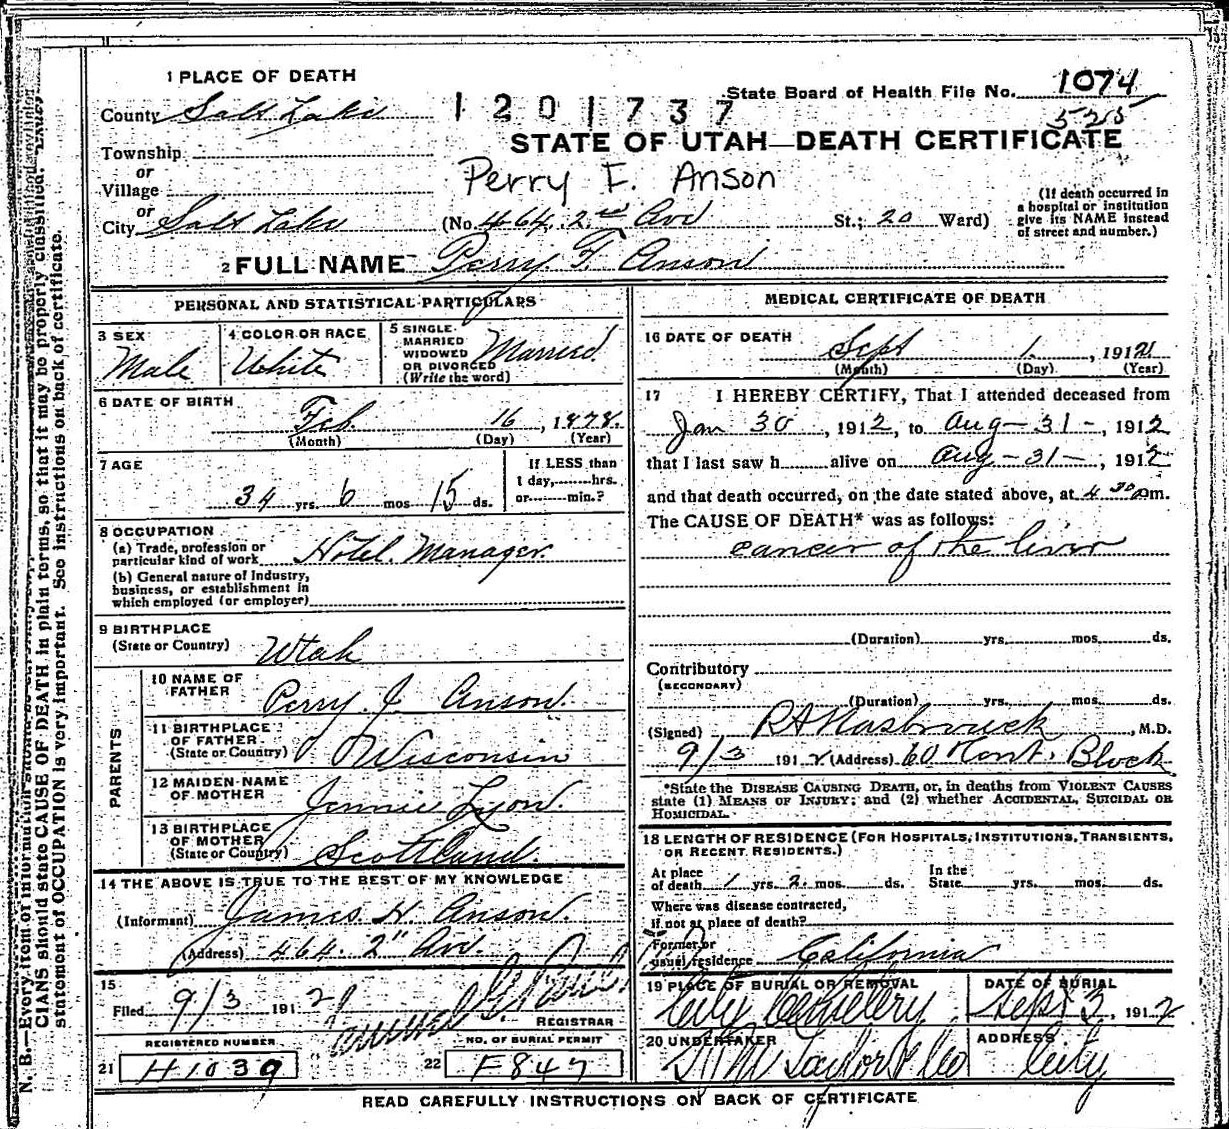 1 PLACE OF DEATH
State Board of Health File No. 1074
County Salt Lake
1201737
525
STATE OF UTAH—DEATH CERTIFICATE
Township
or
Village
Perry F. Anson
(If death occurred in a hospital or institution give its NAME instead of street and number.)
or
City Salt Lake (No. 464. 2nd Ave St.; 20 Ward)
2 FULL NAME Perry. F. Anson
PERSONAL AND STATISTICAL PARTICULARS
3 SEX Male
4 COLOR OR RACE White
5 SINGLE MARRIED WIDOWED OR DIVORCED (Write the word) Married
6 DATE OF BIRTH Feb. 16, 1878.
(Month) (Day) (Year)
7 AGE
34 yrs. 6 mos 15 ds.
If LESS than 1 day, hrs. or min.?
8 OCCUPATION
(a) Trade, profession or particular kind of work Hotel Manager.
(b) General nature of Industry, business, or establishment in which employed (or employer)
9 BIRTHPLACE
(State or Country) Utah
PARENTS
10 NAME OF FATHER Perry. J. Anson.
11 BIRTHPLACE OF FATHER (State or Country) Wisconsin
12 MAIDEN NAME OF MOTHER Jennie Lyon.
13 BIRTHPLACE OF MOTHER (State or Country) Scottland.
14 THE ABOVE IS TRUE TO THE BEST OF MY KNOWLEDGE
(Informant) James H. Anson.
(Address) 464. 2" Ave.
15
Filed 9/3 1912
REGISTRAR
REGISTERED NUMBER
21 H1039
NO. OF BURIAL PERMIT
22 F847
MEDICAL CERTIFICATE OF DEATH
16 DATE OF DEATH
Sept 1., 1912
(Month) (Day) (Year)
17 I HEREBY CERTIFY, That I attended deceased from
Jan 30, 1912, to Aug-31-, 1912
that I last saw h alive on Aug-31-, 1912
and that death occurred, on the date stated above, at 4 30 am.
The CAUSE OF DEATH* was as follows:
cancer of the liver
(Duration) yrs. mos. ds.
Contributory
(SECONDARY)
(Duration) yrs. mos. ds.
(Signed) R A Hasbrouck, M.D.
9/3 1912 (Address) 60 Mont. Block
*State the DISEASE CAUSING DEATH, or, in deaths from VIOLENT CAUSES
state (1) MEANS OF INJURY; and (2) whether ACCIDENTAL, SUICIDAL OR
HOMICIDAL.
18 LENGTH OF RESIDENCE (FOR HOSPITALS, INSTITUTIONS, TRANSIENTS,
OR RECENT RESIDENTS.)
At place of death 1 yrs. 2. mos. ds. In the State yrs. mos. ds.
Where was disease contracted,
if not at place of death?
Former or
usual residence California
19 PLACE OF BURIAL OR REMOVAL City Cemetery
DATE OF BURIAL Sept 3, 1912
20 UNDERTAKER Taylor & Co
ADDRESS City
READ CAREFULLY INSTRUCTIONS ON BACK OF CERTIFICATE
N. B.—Every item of information
CIANS should state CAUSE OF DEATH in plain terms, so that it may be properly classified.
statement of OCCUPATION is very important. See instructions on back of certificate.